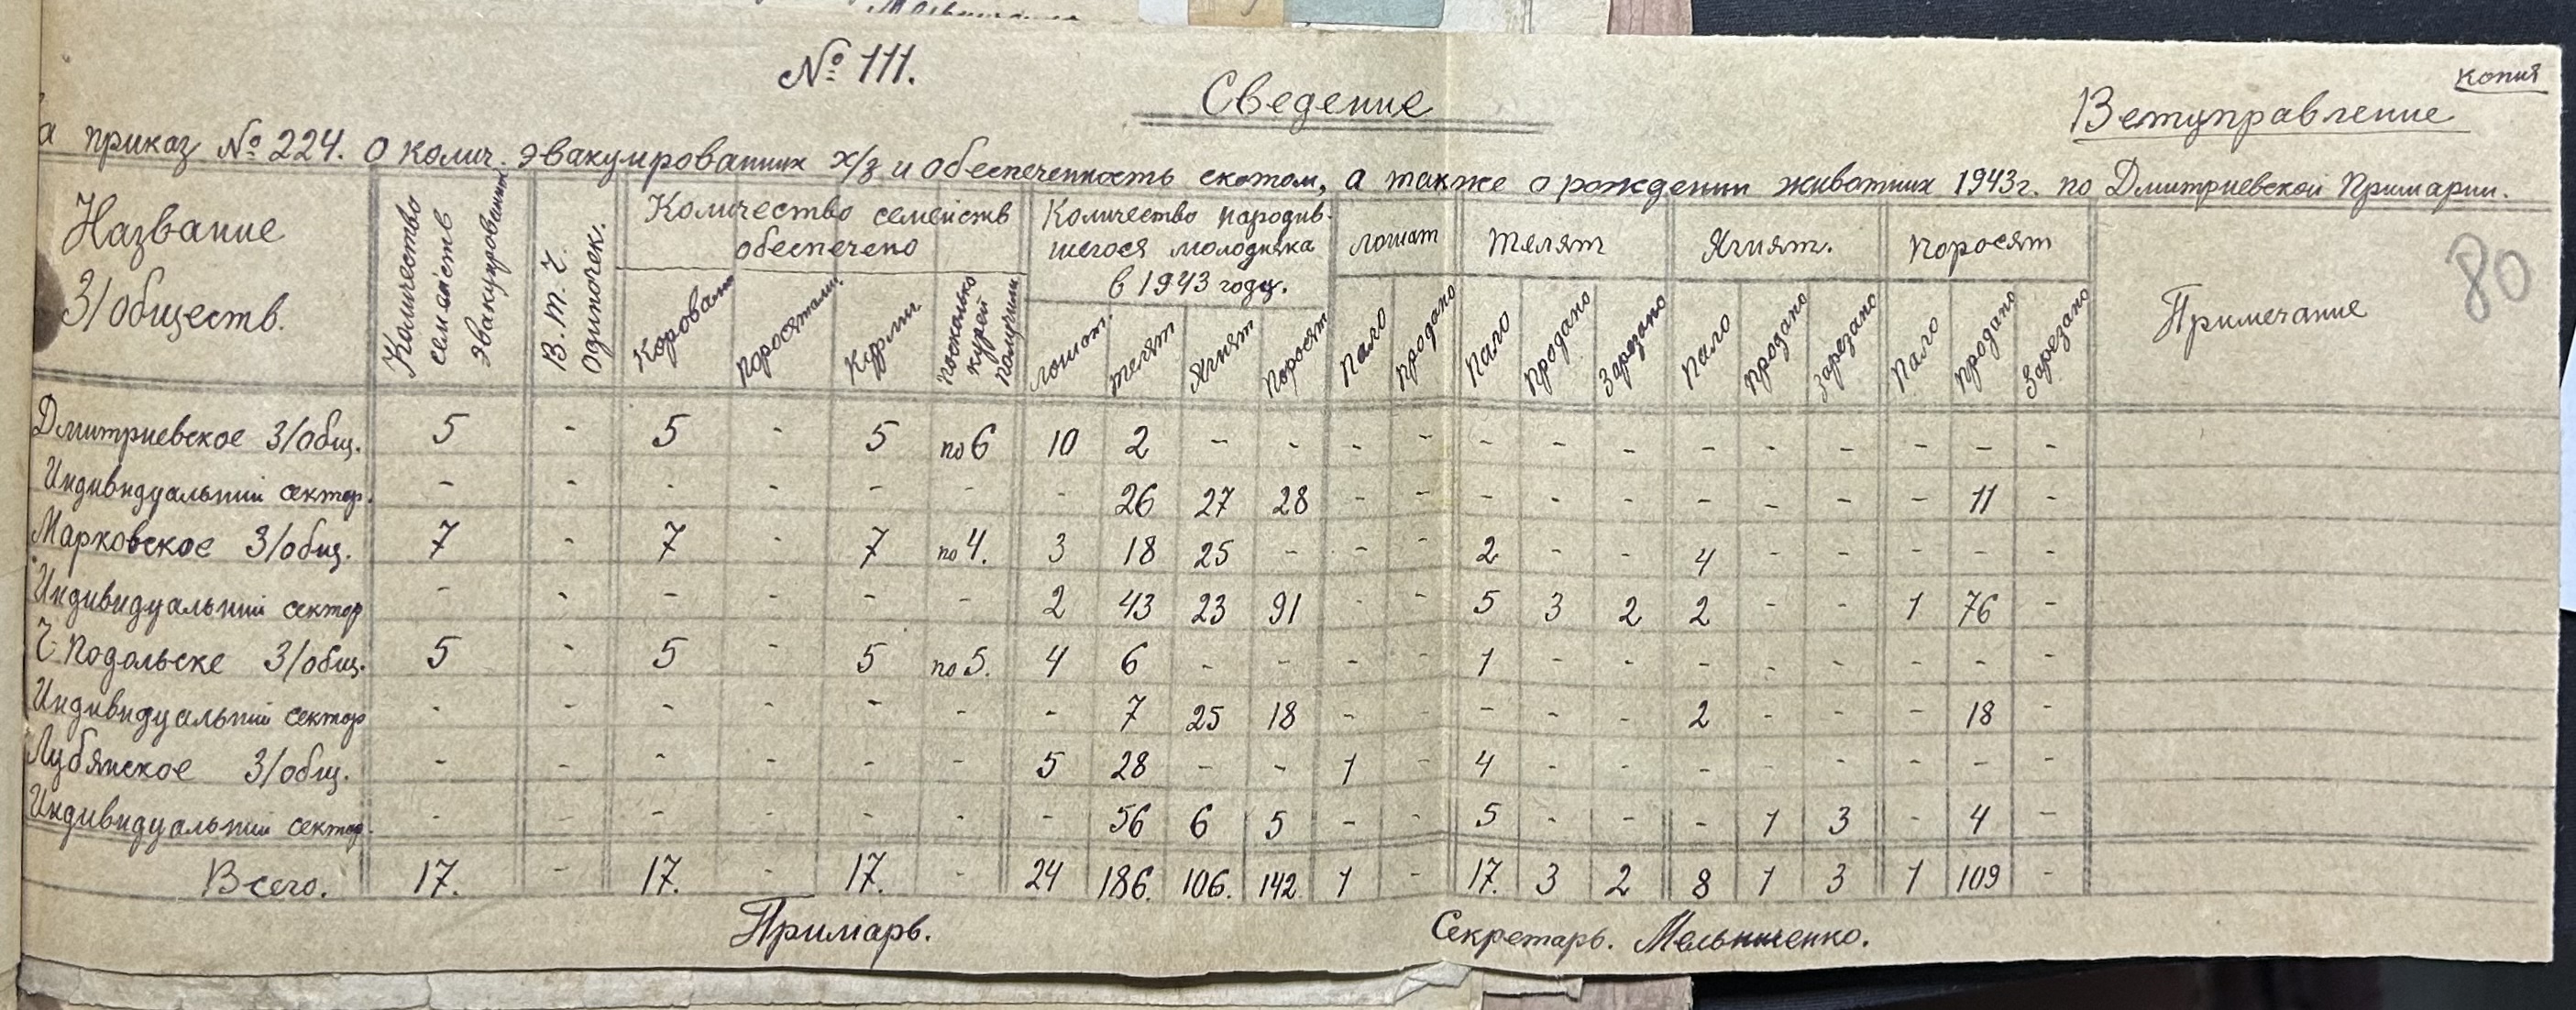 № 111.
копия
Сведение
Ветуправление
а приказ № 224. О колич. эвакуированних х/з и обеспеченность скотом, а также о рождении животних 1943г. по Дмитриевской Примарии.
80
Название З/обществ. | Количество семейств эвакуированних | В. т. ч. одиночек. | Количество семейств обеспечено | Количество народив-шегося молодняка в 1943 году. | лошат | Телят | Ягнят. | Поросят | Примечание
Коровами | поросятами. | Курми | посколько курей получили | лошат. | телят | Ягнят | Поросят | Пало | продано | Пало | Продано | Зарезано | Пало | продано | Зарезано | Пало | Продано | Зарезано
Дмитриевское З/общ. | 5 | - | 5 | - | 5 | по 6 | 10 | 2 | - | - | - | - | - | - | - | - | - | - | - | - | -
Индивидуальний сектор. | - | - | - | - | - | - | - | 26 | 27 | 28 | - | - | - | - | - | - | - | - | - | 11 | -
Марковское З/общ. | 7 | - | 7 | - | 7 | по 4. | 3 | 18 | 25 | - | - | - | 2 | - | - | 4 | - | - | - | - | -
Индивидуальний сектор | - | - | - | - | - | - | 2 | 43 | 23 | 91 | - | - | 5 | 3 | 2 | 2 | - | - | 1 | 76 | -
Ч-Подольске З/общ. | 5 | - | 5 | - | 5 | по 5. | 4 | 6 | - | - | - | - | 1 | - | - | - | - | - | - | - | -
Индивидуальний сектор | - | - | - | - | - | - | - | 7 | 25 | 18 | - | - | - | - | - | 2 | - | - | - | 18 | -
Лубянское З/общ. | - | - | - | - | - | - | 5 | 28 | - | - | 1 | - | 4 | - | - | - | - | - | - | - | -
Индивидуальний сектор. | - | - | - | - | - | - | - | 56 | 6 | 5 | - | - | 5 | - | - | - | 1 | 3 | - | 4 | -
Всего. | 17. | - | 17. | - | 17. | - | 24 | 186. | 106. | 142 | 1 | - | 17. | 3 | 2 | 8 | 1 | 3 | 1 | 109 | -
Примарь.
Секретарь. Мельниченко.